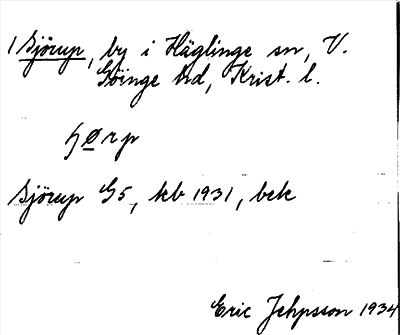 1 Sjörup, by i Häglinge sn, V.
Göinge hd, Krist. l.
ɧørp
Sjörup G5, kb 1931, bek
Eric Jehpsson 1934